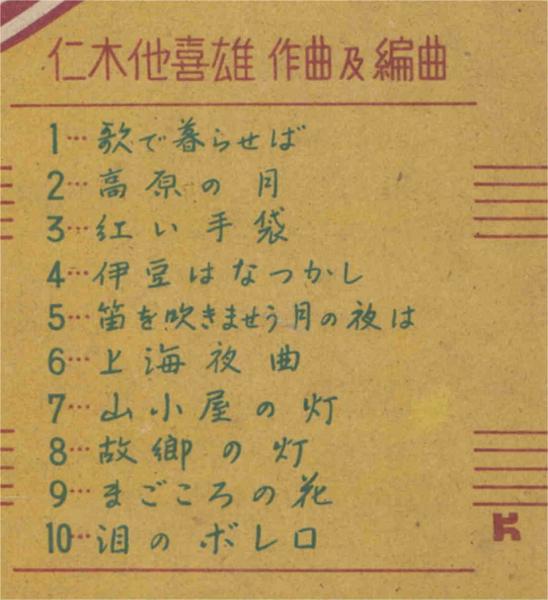 仁木他喜雄 作曲及編曲
1…歌で暮らせば
2…高原の月
3…紅い手袋
4…伊豆はなつかし
5…笛を吹きませう月の夜は
6…上海夜曲
7…山小屋の灯
8…故郷の灯
9…まごころの花
10…泪のボレロ